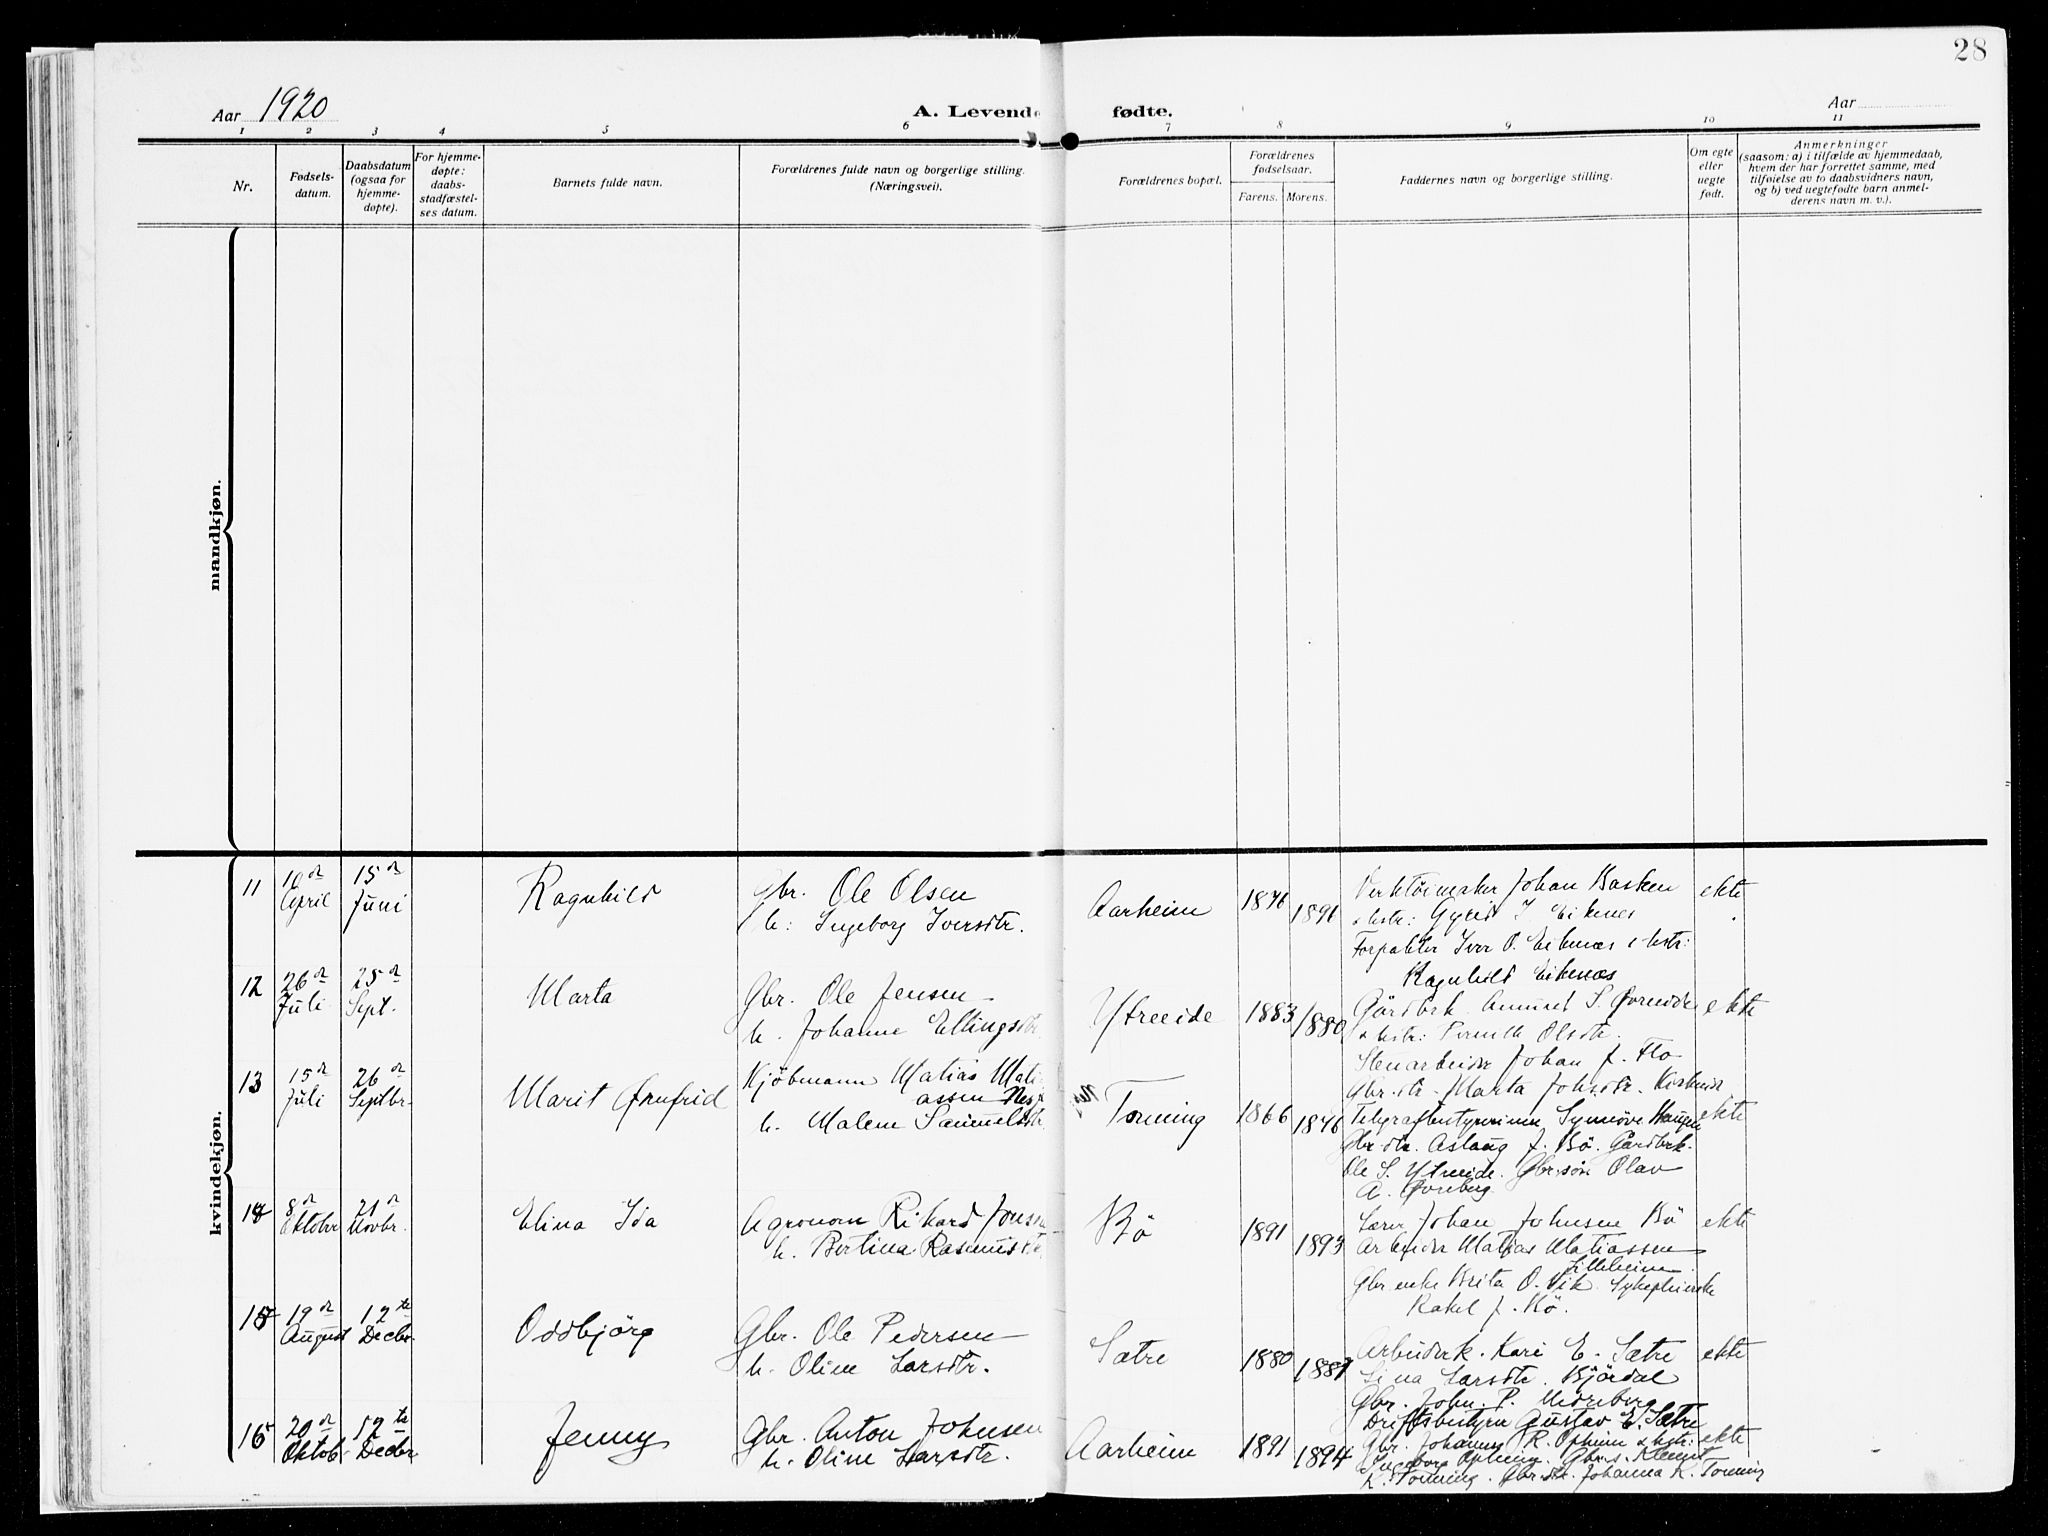 28
Aar 1920
A. Levende
fødte.
Aar
1 2 3 4 5 6 7 8 9 10 11
Nr.
Fødsels-
datum.
Daabsdatum
(ogsaa for
hjemme-
døpte).
For hjemme-
døpte:
daabs-
stadfæstel-
ses datum.
Barnets fulde navn.
Forældrenes fulde navn og borgerlige stilling.
(Næringsvei).
Forældrenes bopæl.
Forældrenes
fødselsaar.
Farens. Morens.
Faddernes navn og borgerlige stilling.
Om egte
eller
uegte
født.
Anmerkninger
(saasom: a) i tilfælde av hjemmedaab,
hvem der har forrettet samme, med
tilføielse av to daabsvidners navn,
og b) ved uegtefødte barn anmel-
derens navn m. v.).
mandkjøn.
kvindekjøn.
11
April
15de
Juni
Ragnhild
Gbr. Ole Olsen
h: Ingeborg Iversdtr.
Aarheim
1876
1891
Verktöimaker Johan Basken
& hstr: Gyrid I. Eiknes
Forpakter Iver O. Eiknæs & hstr:
Ragnhild Eiknæs
ekte
12
26de
Juli
25de
Sept.
Marta
Gbr. Ole Jensen
h. Johanne Ellingsdtr.
Ytreeide
1883
1880
Gårdbrk
& hstr: Pernille Olsdtr.
Stenarbeider Johan J. Flo
Gbr.dtr. Marta Johsdtr.
ekte
13
15de
Juli
26de
Septbr.
Marit Ørnfrid
Kjöbmann Matias Mati-
assen Nesje
h. Malene Samuelsdtr.
Tonning
1866
1876
Telegrafbestyrerinne Synnöve Haugen
Gbr.dtr. Aslaug J. Bö. Gårdbrk.
Ole S. Ytreeide. Gbr.sön Olav
A. Övreberg
ekte
14
8de
Oktober
21de
Novbr.
Elina Ida
Agronom Rikard Jonsen
h. Bertina Rasmusdtr.
Bö
1891
1893
Lærer Johan Johnsen Bö
Arbeider Matias Matiassen
Lilleheim
Gbr. enke Brita O. Vik. Sykepleierske
Rakel J. Bö.
ekte
15
19de
August
12te
Decbr.
Oddbjörg
Gbr. Ole Pedersen
h. Oline Larsdtr.
Sætre
1880
1887
Arbeiderk. Kari E. Sætre
Lina Larsdtr. Björdal
Gbr. John P. Nedreberg
Driftsbestyrer Gustav E. Sætre
ekte
16
20de
Oktob.
12te
Decbr
Jenny
Gbr. Anton Johnsen
h. Oline Larsdtr.
Aarheim
1891
1894
Gbr. Johannes R. Opheim & hstr:
Ingeborg Opheim. Gbr.s. Klemet
K. Tonning. Gbr.dtr. Johanna K. Tonning
ekte